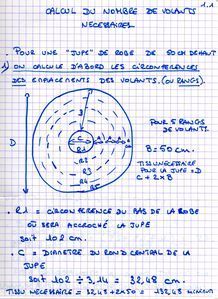 1.1
CALCUL DU NOMBRE DE VOLANTS
NECESSAIRES
. POUR UNE "JUPE" DE ROBE DE 50CM DE HAUT
1) ON CALCULE D'ABORD LES CIRCONFERENCES
DES EMPLACEMENTS DES VOLANTS. (OU RANGS)
POUR 5 RANGS
DE VOLANTS.
B = 50 cm.
D
C
R1
R2
R3
TISSU NECESSAIRE
POUR LA JUPE = D
C + 2 x B
. R1 = CIRCONFERENCE DU BAS DE LA ROBE
OÙ SERA ACCROCHÉ LA JUPE
soit 102 cm.
. C = DIAMETRE DU ROND CENTRAL DE LA
JUPE
soit 102 ÷ 3,14 = 32,48 cm.
TISSU NECESSAIRE = 32,48 + 2x50 = 132,48 MINIMUM